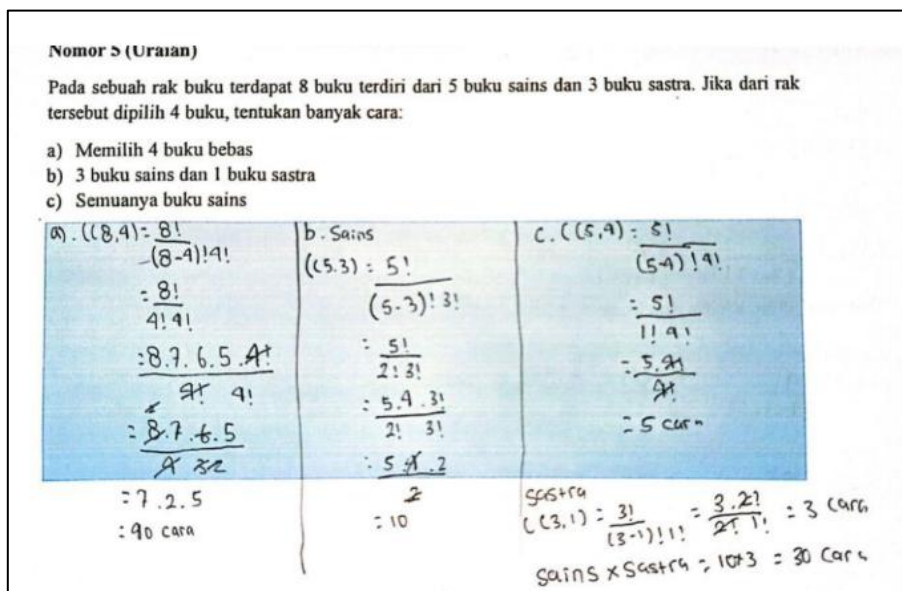 Nomor 5 (Uraian)
Pada sebuah rak buku terdapat 8 buku terdiri dari 5 buku sains dan 3 buku sastra. Jika dari rak
tersebut dipilih 4 buku, tentukan banyak cara:
a) Memilih 4 buku bebas
b) 3 buku sains dan 1 buku sastra
c) Semuanya buku sains
a). C(8,4) = 8!
(8-4)!4!
= 8!
4! 4!
= 8.7.6.5.4!
4! 4!
= 8.7.6.5
4 3 2
= 7.2.5
= 90 cara
b. Sains
C(5.3) = 5!
(5.3)! 3!
= 5!
2! 3!
= 5.4.3!
2! 3!
= 5 4.2
2
= 10
c. C(5,4) = 5!
(5-4)! 4!
= 5!
1! 4!
= 5.4!
4!
= 5 cara
Sastra
C(3,1) = 3! = 3.2! = 3 cara
(3-1)!1! 2! 1!
Sains x Sastra = 10x3 = 30 cara